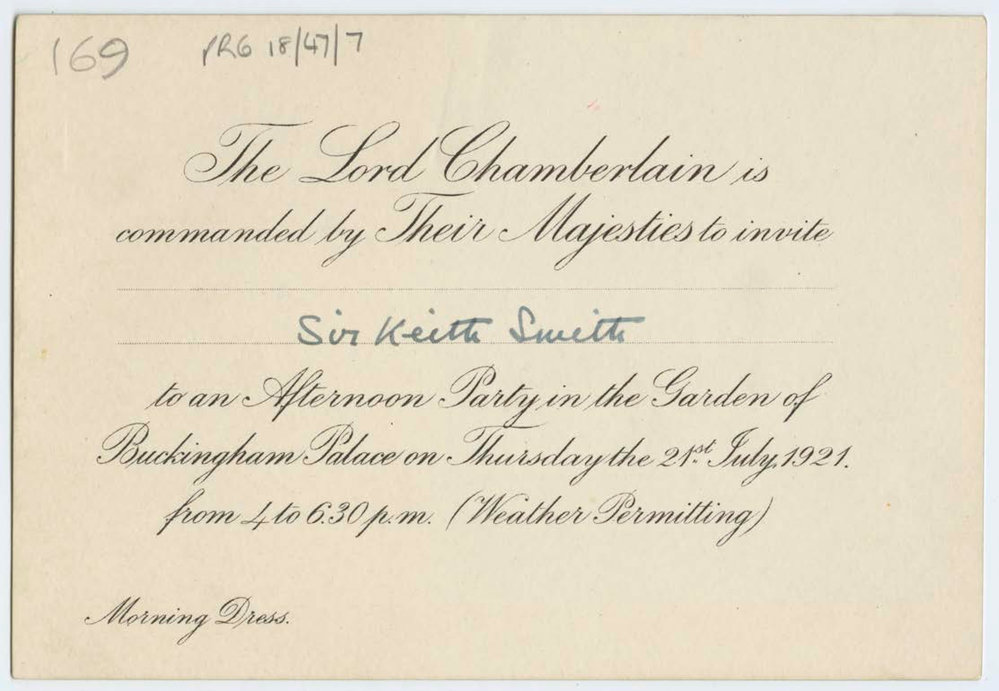 169 PRG 18/47/7
The Lord Chamberlain is
commanded by Their Majesties to invite
Sir Keith Smith
to an Afternoon Party in the Garden of
Buckingham Palace on Thursday the 21st July, 1921.
from 4 to 6.30 p.m. (Weather Permitting)
Morning Dress.